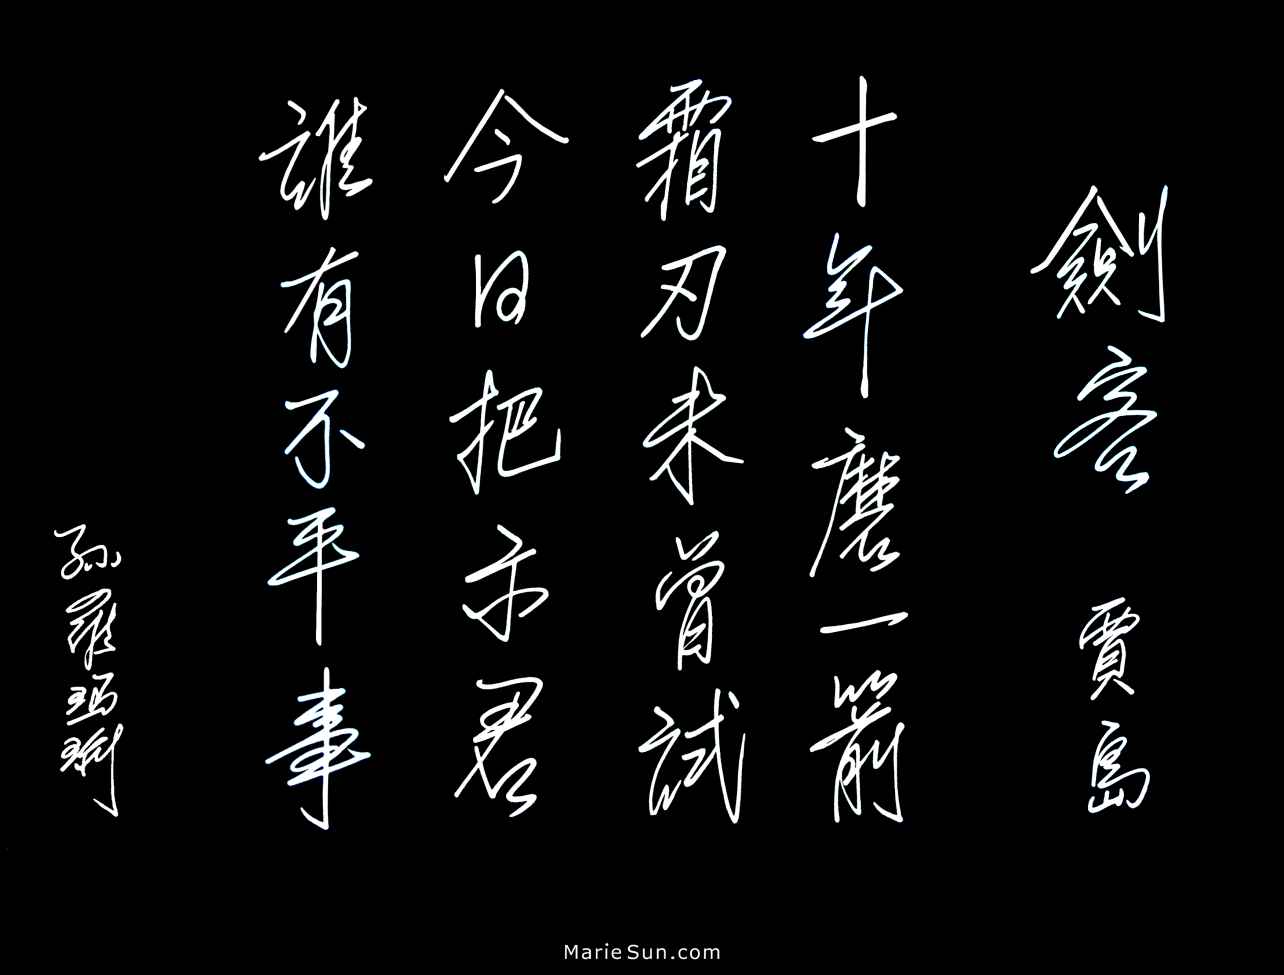 劍客 賈島
十年磨一箭
霜刃未曾試
今日把示君
誰有不平事
孫羅瑪琍
MarieSun.com